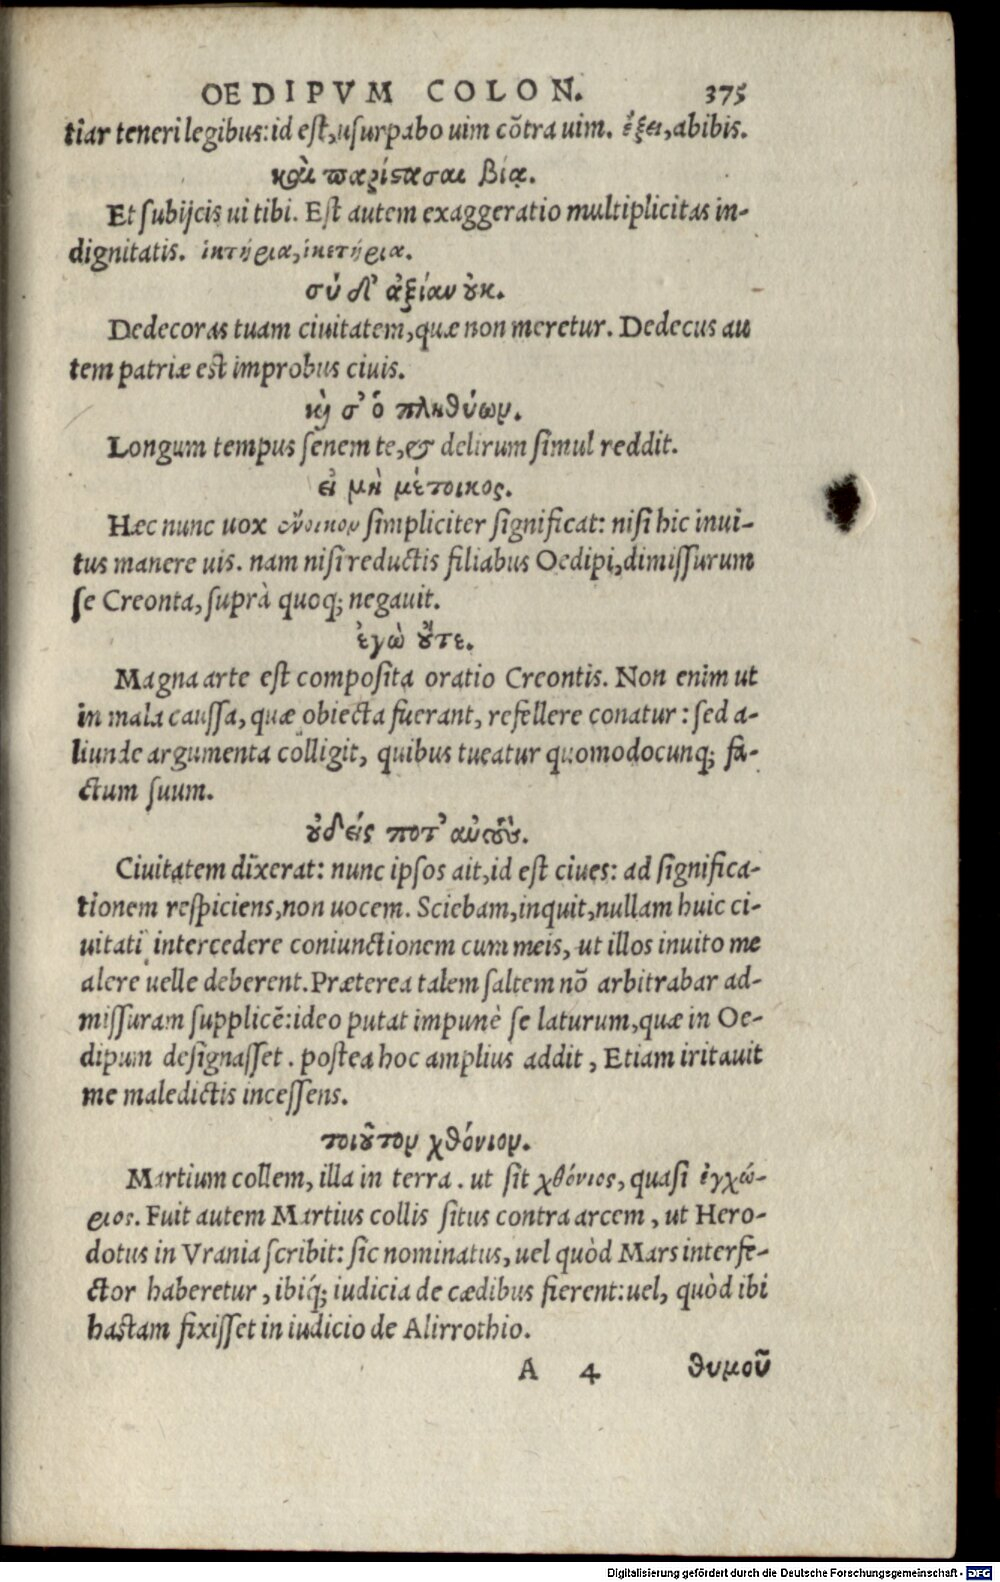 OEDIPVM COLON. 375
tiar teneri legibus: id est, usurpabo uim cõtra uim. ἕξει, abibis.
καὶ παρίστασαι βίᾳ.
Et subijcis ui tibi. Est autem exaggeratio multiplicitas in-
dignitatis. ἱκτήρια, ἱκετήρια.
σύ δ' ἀξίαν οὐκ.
Dedecoras tuam ciuitatem, quæ non meretur. Dedecus au
tem patriæ est improbus ciuis.
καί σ' ὁ πληθύων.
Longum tempus senem te, & delirum simul reddit.
εἰ μὴ μέτοικος.
Hæc nunc uox ἔνοικον simpliciter significat: nisi hic inui-
tus manere uis. nam nisi reductis filiabus Oedipi, dimissurum
se Creonta, suprà quoq; negauit.
ἐγὼ οὔτε.
Magna arte est composita oratio Creontis. Non enim ut
in mala caussa, quæ obiecta fuerant, refellere conatur: sed a-
liunde argumenta colligit, quibus tueatur quomodocunq; fa-
ctum suum.
οὐδείς ποτ' αὐτοὺς.
Ciuitatem dixerat: nunc ipsos ait, id est ciues: ad significa-
tionem respiciens, non uocem. Sciebam, inquit, nullam huic ci-
uitati intercedere coniunctionem cum meis, ut illos inuito me
alere uelle deberent. Præterea talem saltem nõ arbitrabar ad-
missuram supplicẽ: ideo putat impunè se laturum, quæ in Oe-
dipum designasset. postea hoc amplius addit, Etiam iritauit
me maledictis incessens.
τοιοῦτον χθόνιον.
Martium collem, illa in terra. ut sit χθόνιος, quasi ἐγχώ-
ριος. Fuit autem Martius collis situs contra arcem, ut Hero-
dotus in Vrania scribit: sic nominatus, uel quòd Mars interfe-
ctor haberetur, ibiq́; iudicia de cædibus fierent: uel, quòd ibi
hastam fixisset in iudicio de Alirrothio.
A 4 θυμοῦ
Digitalisierung gefördert durch die Deutsche Forschungsgemeinschaft - DFG